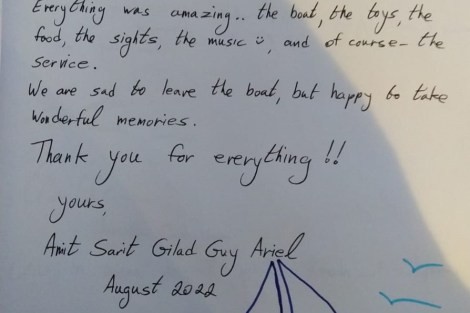 Everything was amazing.. the boat, the toys, the
food, the sights, the music ü, and of course- the
service.
We are sad to leave the boat, but happy to take
Wonderful memories.
Thank you for everything !!
yours,
Amit Sarit Gilad Guy Ariel
August 2022